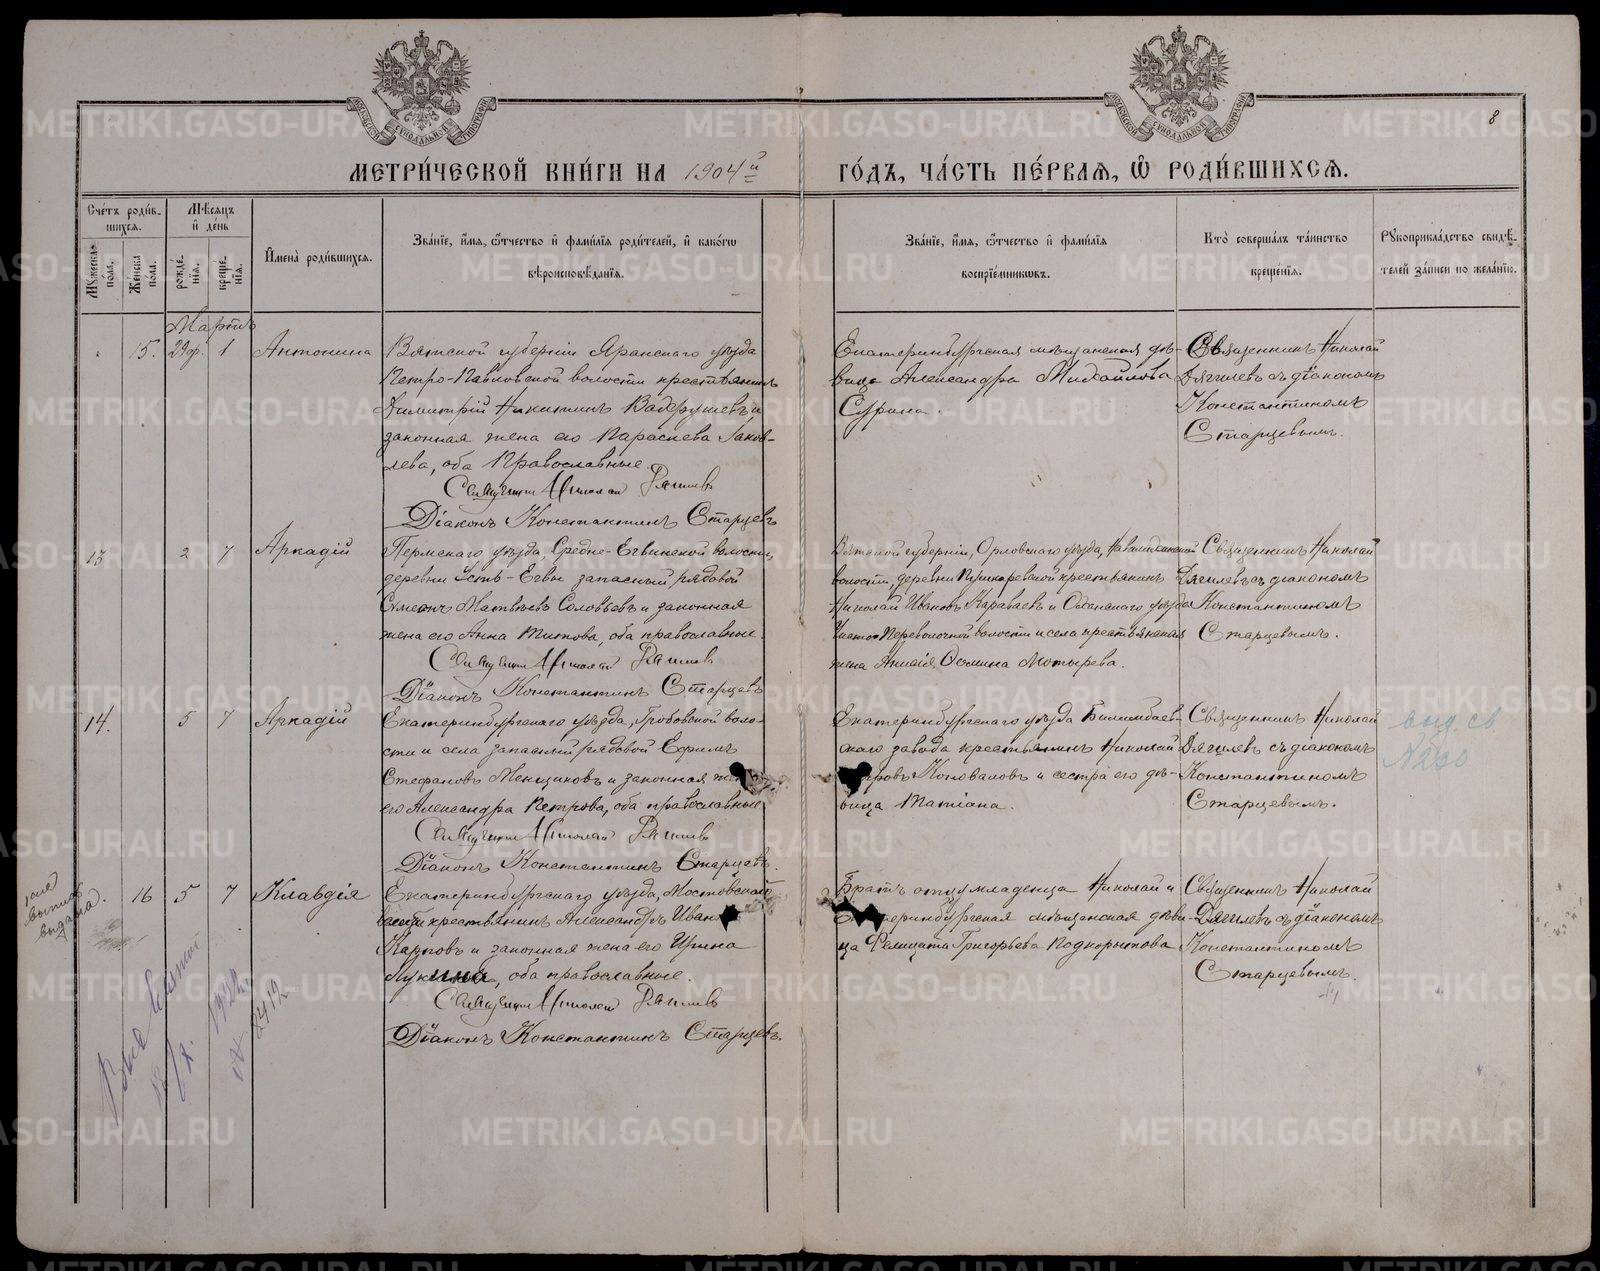 8
МЕТРИ́ЧЕСКОЙ КНИ́ГИ НА 1904й ГО́ДЪ, ЧА́СТЬ ПЕ́РВАѦ, Ѡ҆ РОДИ́ВШИХСѦ.
Сче́тъ роди́в-
шихсѧ.
Мѣ́сѧцъ
и҆ де́нь
Мꙋ́жеска
пола.
Же́нска
по́ла.
рожде́-
нїѧ.
креще́-
нїѧ.
И҆мена̀ роди́вшихсѧ.
Зва́нїе, и҆́мѧ, ѻ҆́тчество и҆ фами́лїѧ роди́телей, и҆ како́гѡ
вѣроисповѣ́данїѧ.
Зва́нїе, и҆́мѧ, ѻ҆́тчество и҆ фами́лїѧ
воспрїе́мниковъ.
Кто̀ соверша́лъ та́инство
креще́нїѧ.
Рꙋкоприкла́дство свидѣ́-
телей за́писи по жела́нїю.
Мартъ
15. 29ф. 1 Антонина
Вятской губерніи Яранскаго уѣзда
Петро-Павловской волости крестьянинъ
Димитрій Никитинъ Вахрушевъ и
законная жена его Параскева Іаков-
лева, оба Православные.
Священникъ Николай Дягилевъ
Діаконъ Константинъ Старцевъ
Екатеринбургская мѣщанская дѣ-
вица Александра Михайлова
Сурина.
Священникъ Николай
Дягилевъ съ діакономъ
Константиномъ
Старцевымъ.
13 2 7 Аркадій
Пермскаго уѣзда, Средне-Егвинской волости,
деревни Усть-Егвы запасный рядовой
Симеонъ Матвѣевъ Соловьевъ и законная
жена его Анна Титова, оба православные.
Священникъ Николай Дягилевъ
Діаконъ Константинъ Старцевъ
Вятской губерніи, Орловскаго уѣзда,
волости, деревни Пушкаревской крестьянинъ
Николай Ивановъ Караваевъ и Оханскаго уѣзда
Чисто-Переволочной волости и села крестьянская
жена Анисія Фомина Мотырева.
Священникъ Николай
Дягилевъ съ діакономъ
Константиномъ
Старцевымъ.
14. 5 7 Аркадій
Екатеринбургскаго уѣзда, Гробовской воло-
сти и села запасный рядовой Ефимъ
Стефановъ Меньщиковъ и законная
его Александра Петрова, оба православные
Священникъ Николай Дягилевъ
Діаконъ Константинъ Старцевъ.
Екатеринбургскаго уѣзда Билимбаев-
скаго завода крестьянинъ Николай
Коноваловъ и сестра его дѣ-
вица Татіана.
Священникъ Николай
Дягилевъ съ діакономъ
Константиномъ
Старцевымъ.
выд. св
№ 290
выпись
выдана.
16 5 7 Клавдія
Екатеринбургскаго уѣзда, Мостовской
села крестьянинъ Александръ Иванов
Карповъ и законная жена его Ирина
Лукина, оба православные.
Священникъ Николай Дягилевъ
Діаконъ Константинъ Старцевъ.
Братъ отцу младенца Николай и
Екатеринбургская мѣщанская дѣви-
ца Фелицата Григорьева Подкорытова
Священникъ Николай
Дягилевъ съ діакономъ
Константиномъ
Старцевымъ.
METRIKI.GASO-URAL.RU